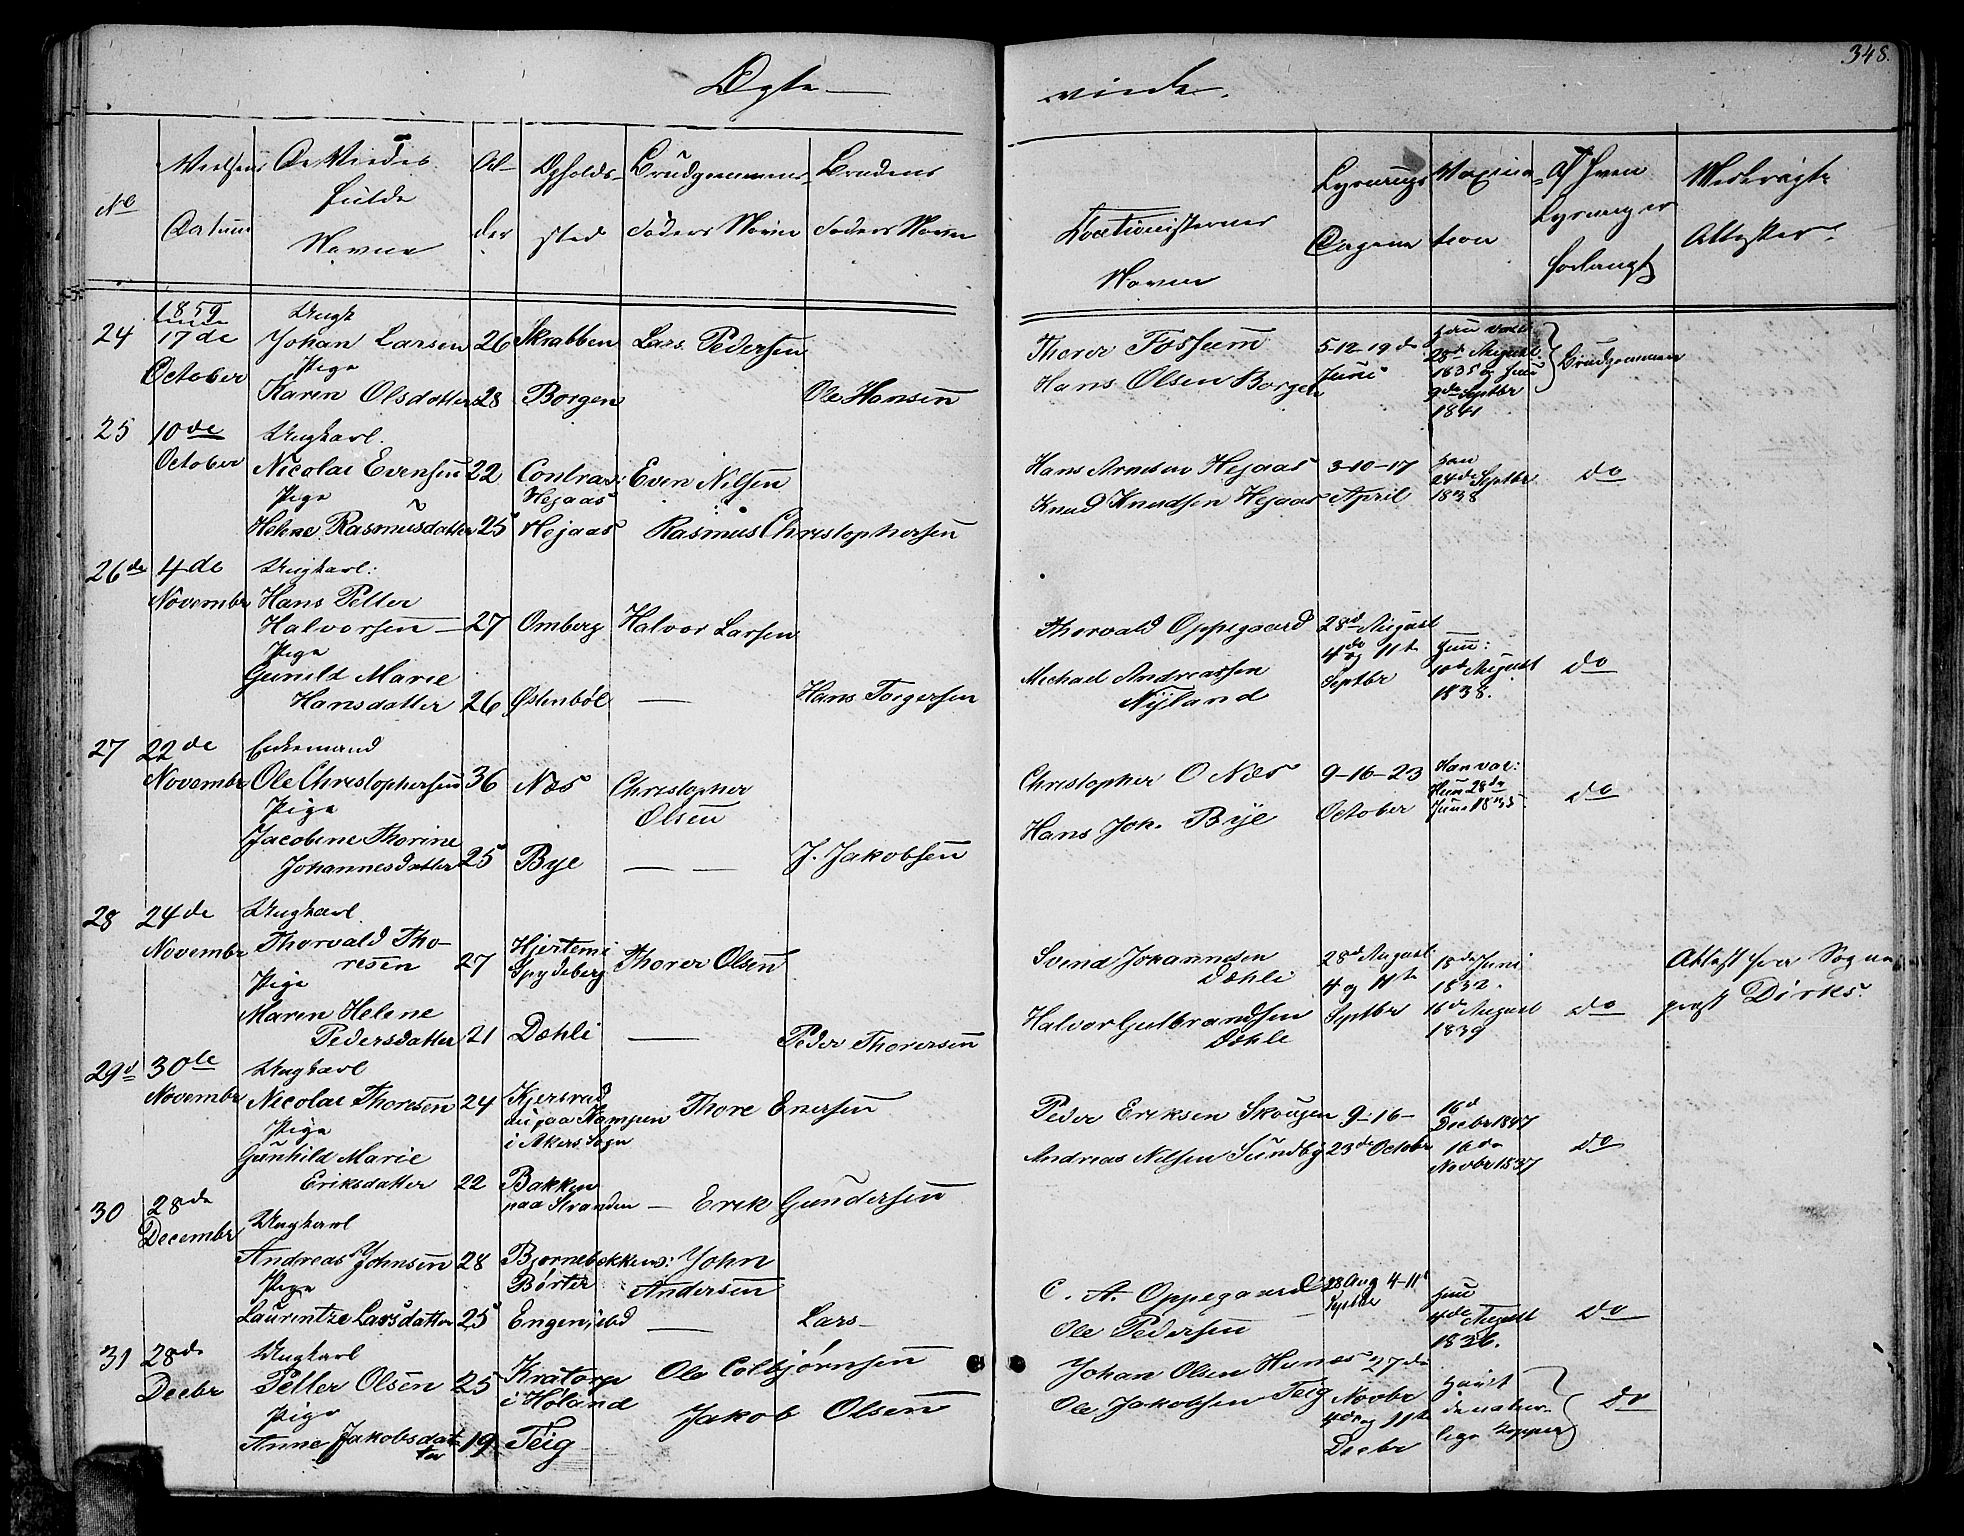 348.
Ægte viede.
No
Vielsens Datum
De Viedes fulde Navne
Alder
Opholdssted
Brudgommens Faders Navn
Brudens Faders Navn
Forlovernes Navne
Lysnings Dagene
Vaxination
Af hvem Lysning er forlangt
Merkelige Attester.
24
1859
17de October
Ungk
Johan Larsen 26 Skrabben Lars Pedersen
Pige
Karen Olsdatter 28 Borgen Ole Hansen
Thorer Fossum
Hans Olsen Borgen
5-12-19de Juni
28de August 1835 og hun 9de Septbr 1841
Brudgommen
25
10de October
Ungkarl.
Nicolai Evensen 22 Contras: Hejaas Even Nilsen
Pige
Helene Rasmusdatter 25 Hejaas Rasmus Christophersen
Hans Arnesen Hejaas
Knud Knudsen Hejaas
3-10-17 April
24de Septbr 1838
do
26de
4de Novembr
Ungkarl:
Hans Petter
Halvorsen 27 Omberg Halvor Larsen
Pige
Gunild Marie
Hansdatter 26 Østenbøl — Hans Torgersen
Thorvald Oppegaard
Michael Andreassen Nÿland
28de August 4de og 11te Septbr
hun: 10de August 1838.
do
27
22de Novembr
Enkemand
Ole Christophersen 36 Næs Christopher Olsen
Pige
Jacobine Thorine
Johannesdatter 25 Bye — — J. Jakobsen
Christopher O Næs
Hans Joh. Bÿe
9-16-23 October
Han vac: Hun 28de Juni 1835
do
28
24de Novembr
Ungkarl
Thorvald Thoresen 27 Hjertemi Spydeberg Thorer Olsen
Pige
Maren Helene
Pedersdatter 21 Dæhli — Peder Thorersen
Svend Johannesen Dæhli
Halvor Gulbrandsen Dæhle
28de August 4 og 11te Septbr
18de Juni 1832.
16de August 1839
do
Attest fra Sogneprest Dirks.
29d
30te Novembr
Ungkarl
Nicolai Thoresen 24 Kjersrud nu paa Kampen i Akers Sogn Thore Enersen
Pige
Gunhild Marie
Eriksdatter 22 Bakken paa Stranden — Erik Gundersen
Peder Eriksen Skougen
Andreas Nilsen Sundby
9-16-23de Octobr
16d Decbr 1847
16de Novbr 1837
do
30
28de Decembr
Ungkarl
Andreas Johnsen 28 Bjørnebekken: Børter John Andersen
Pige
Laurentze Larsdatter 25 Engen, ibd — Lars—
C. A. Oppegaard
Ole Pedersen
28 Aug 4-11t Septbr
hun 4de August 1836.
do
31
28de Decbr
Ungkarl
Petter Olsen 25 Kratorp i Høland Ole Colbjørnsen
Pige
Anne Jakobsdatter 19 Teig Jakob Olsen
Johan Olsen Hunæs
Ole Jakobsen Teig
27de Novbr 4de og 11te Decbr
havt de naturlige Kopper
do